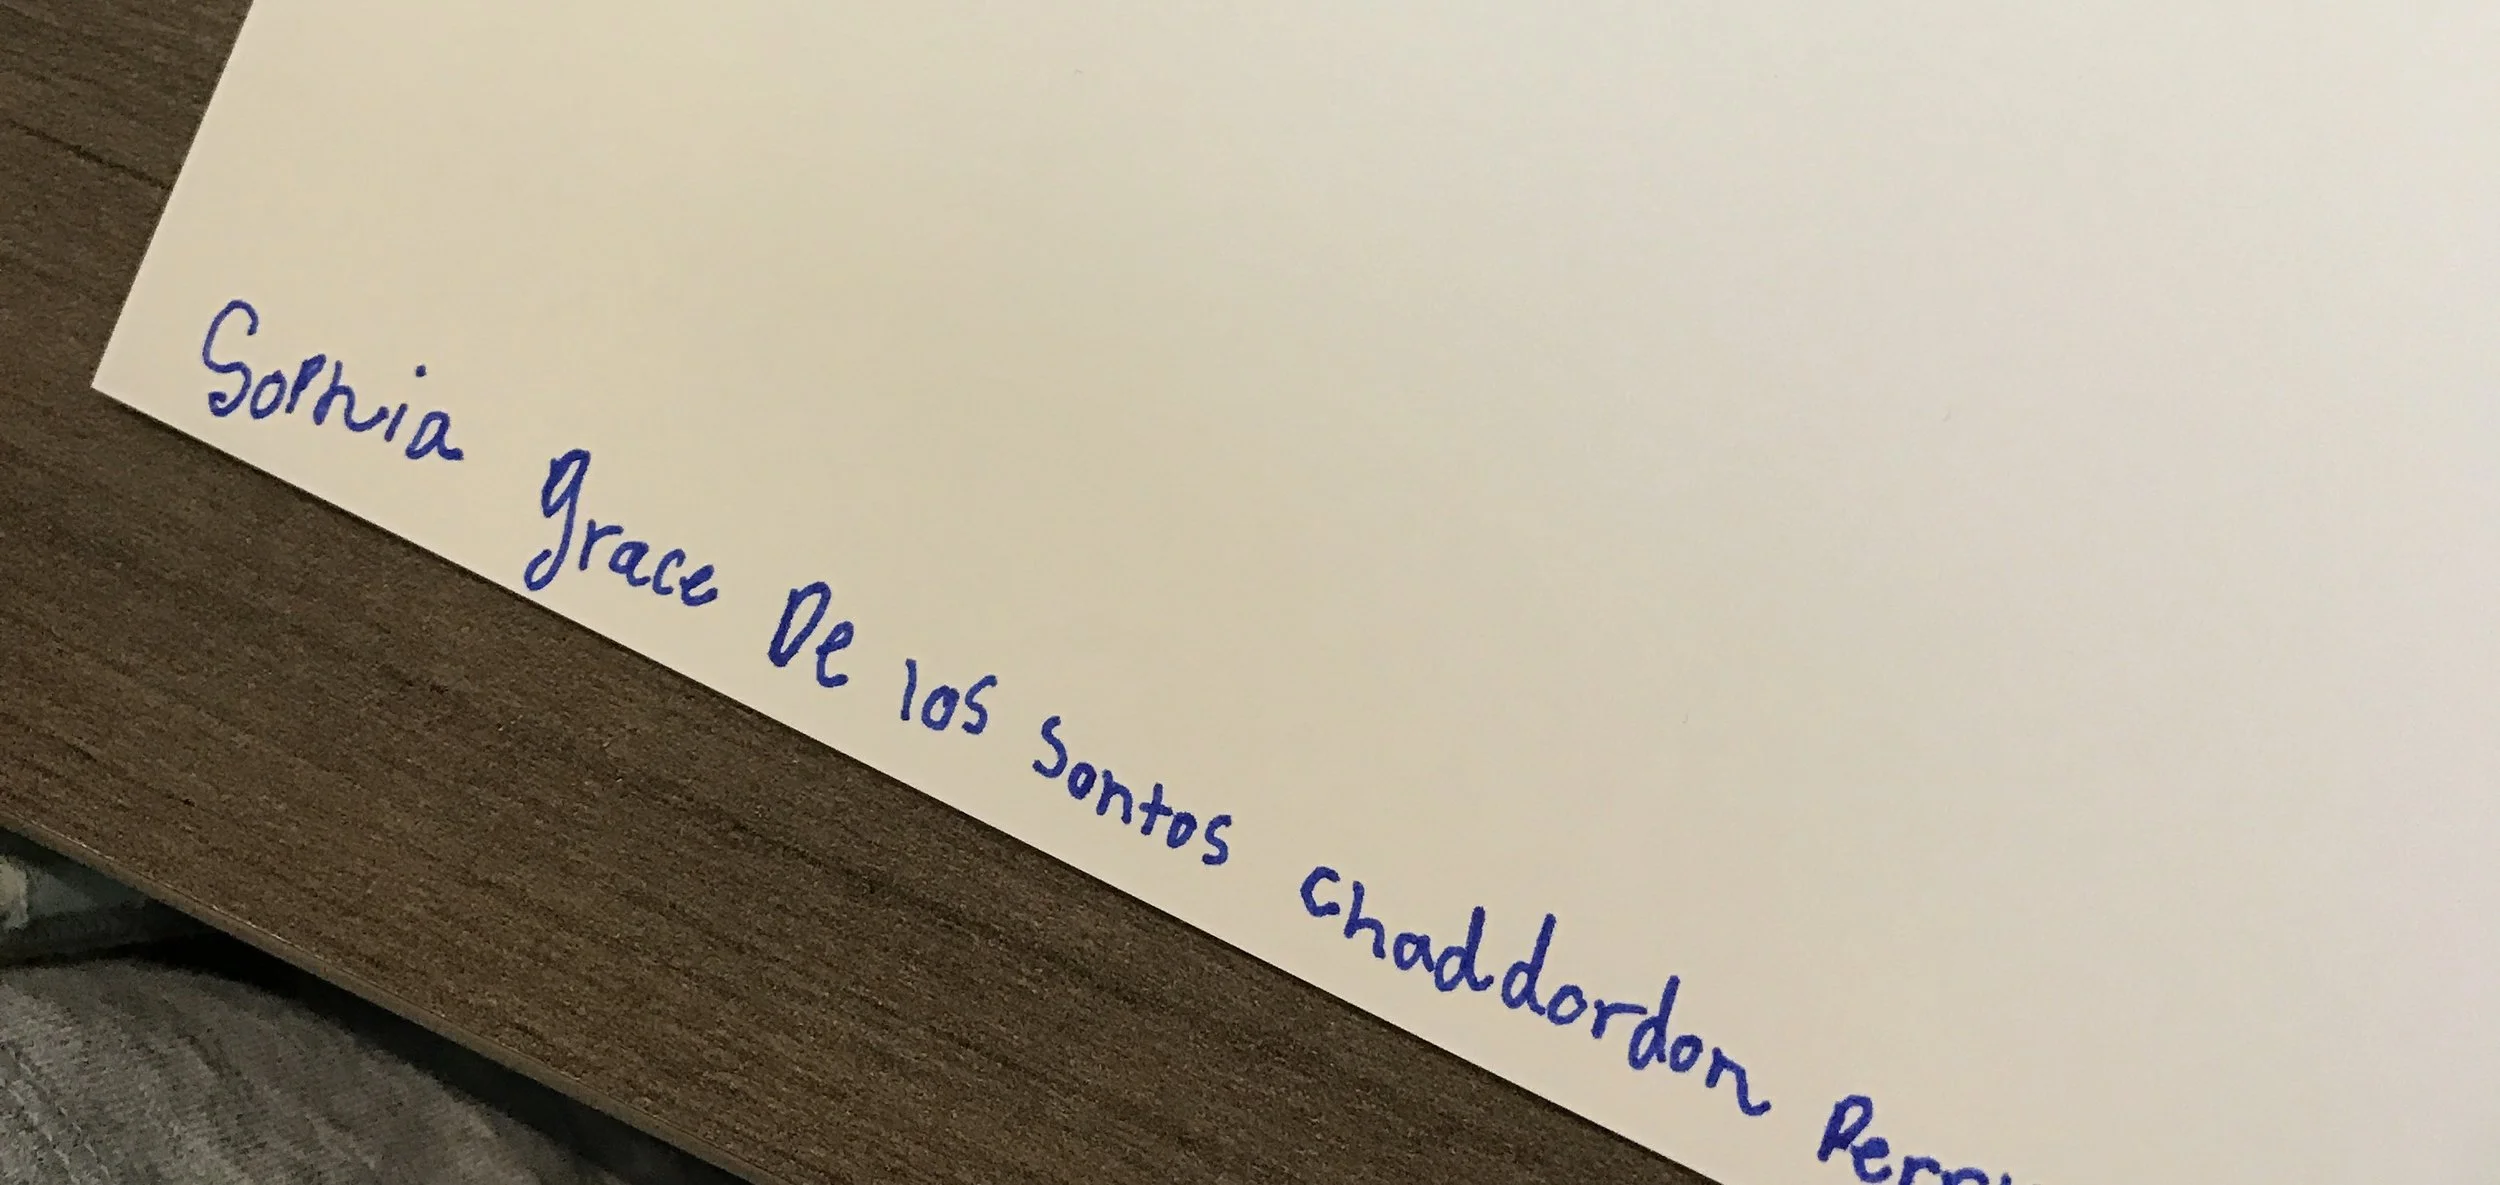 Sophia grace De los Santos Chaddordon